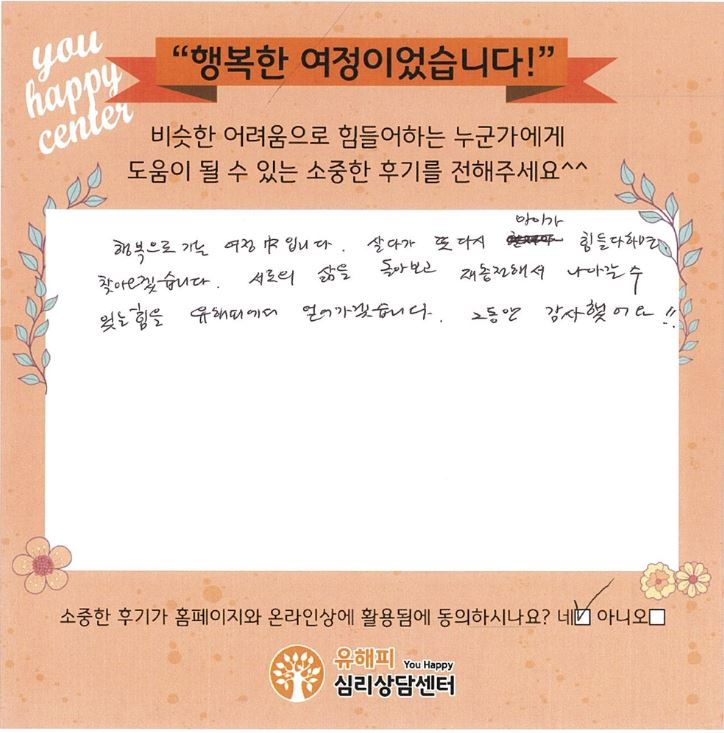 you
happy
center
“행복한 여정이었습니다!”
비슷한 어려움으로 힘들어하는 누군가에게
도움이 될 수 있는 소중한 후기를 전해주세요^^
행복으로 가는 여정中입니다. 살다가 또 다시 맘이가 힘들다하면,
찾아오겠습니다. 서로의 삶을 돌아보고 재충전해서 나아갈 수
있는 힘을 유해피에서 얻어가겠습니다. 그동안 감사했어요!!
소중한 후기가 홈페이지와 온라인상에 활용됨에 동의하시나요? 네 아니오
유해피 You Happy
심리상담센터